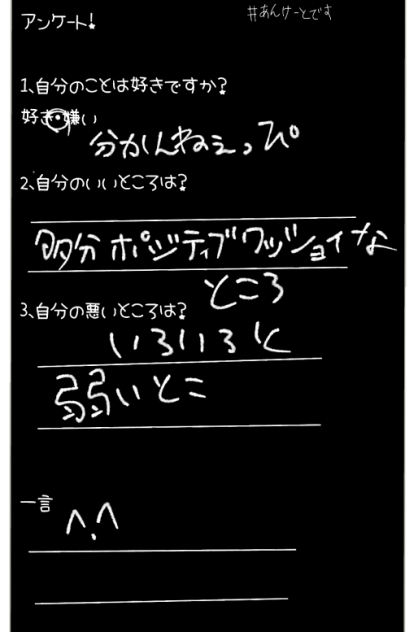 アンケート!
#あんけーとです
1、自分のことは好きですか?
好き・嫌い
分かんねぇっぴ
2、自分のいいところは?
多分ポジティブワッショイな
ところ
3、自分の悪いところは?
いろいろと
弱いとこ
一言
^.^